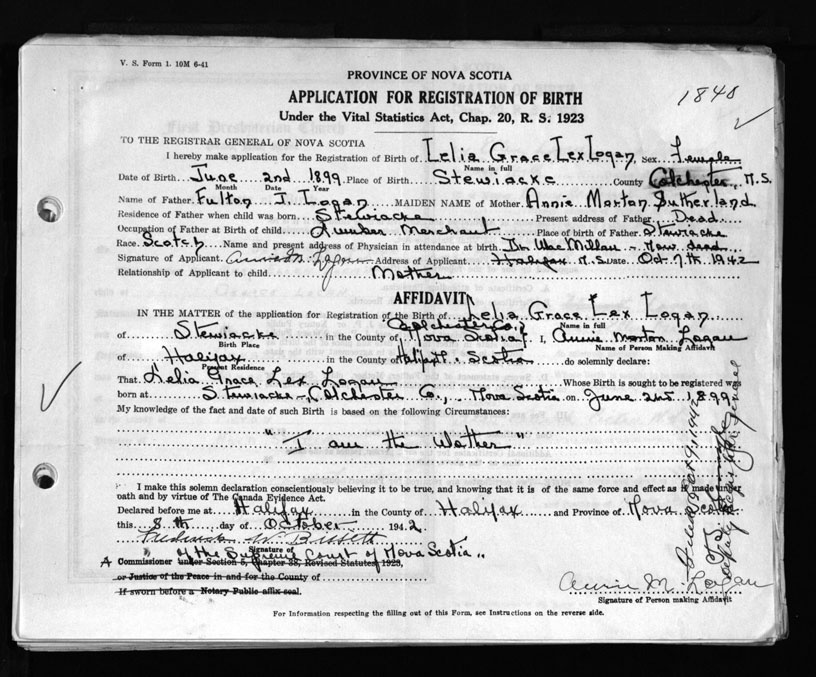 V. S. Form 1. 10M 6-41
PROVINCE OF NOVA SCOTIA
1840
APPLICATION FOR REGISTRATION OF BIRTH
Under the Vital Statistics Act, Chap. 20, R. S. 1923
TO THE REGISTRAR GENERAL OF NOVA SCOTIA
I hereby make application for the Registration of Birth of Lelia Grace Lex Logan, Sex Female
Name in full
Date of Birth June 2nd 1899 Place of Birth Stewiacke County Colchester, N.S.
Month Date Year
Name of Father Fulton J. Logan MAIDEN NAME of Mother Annie Morton Sutherland
Residence of Father when child was born Stewiacke Present address of Father Dead
Occupation of Father at Birth of child Lumber Merchant Place of birth of Father Stewiacke
Race Scotch Name and present address of Physician in attendance at birth Dr MacMillan - Now dead
Signature of Applicant Annie M. Logan Address of Applicant Halifax N.S. Date Oct 7th 1942
Relationship of Applicant to child Mother
AFFIDAVIT
IN THE MATTER of the application for Registration of the Birth of Lelia Grace Lex Logan,
Name in full
of Stewiacke in the County of Colchester Co., Nova Scotia I, Annie Morton Logan
Birth Place Name of Person Making Affidavit
of Halifax in the County of Halifax Scotia do solemnly declare:
Present Residence
That Lelia Grace Lex Logan Whose Birth is sought to be registered was
born at Stewiacke, Colchester Co., Nova Scotia on June 2nd, 1899
My knowledge of the fact and date of such Birth is based on the following Circumstances:
"I am the Mother"
I make this solemn declaration conscientiously believing it to be true, and knowing that it is of the same force and effect as if made under
oath and by virtue of The Canada Evidence Act.
Declared before me at Halifax in the County of Halifax and Province of Nova Scotia
this 8th day of October 1942
Frederick W. Bissett
Signature of
of the Supreme Court of Nova Scotia
A Commissioner under Section 5, Chapter 38, Revised Statutes 1923,
or Justice of the Peace in and for the County of
If sworn before a Notary Public affix seal.
Annie M. Logan
Signature of Person Making Affidavit
For Information respecting the filling out of this Form, see Instructions on the reverse side.